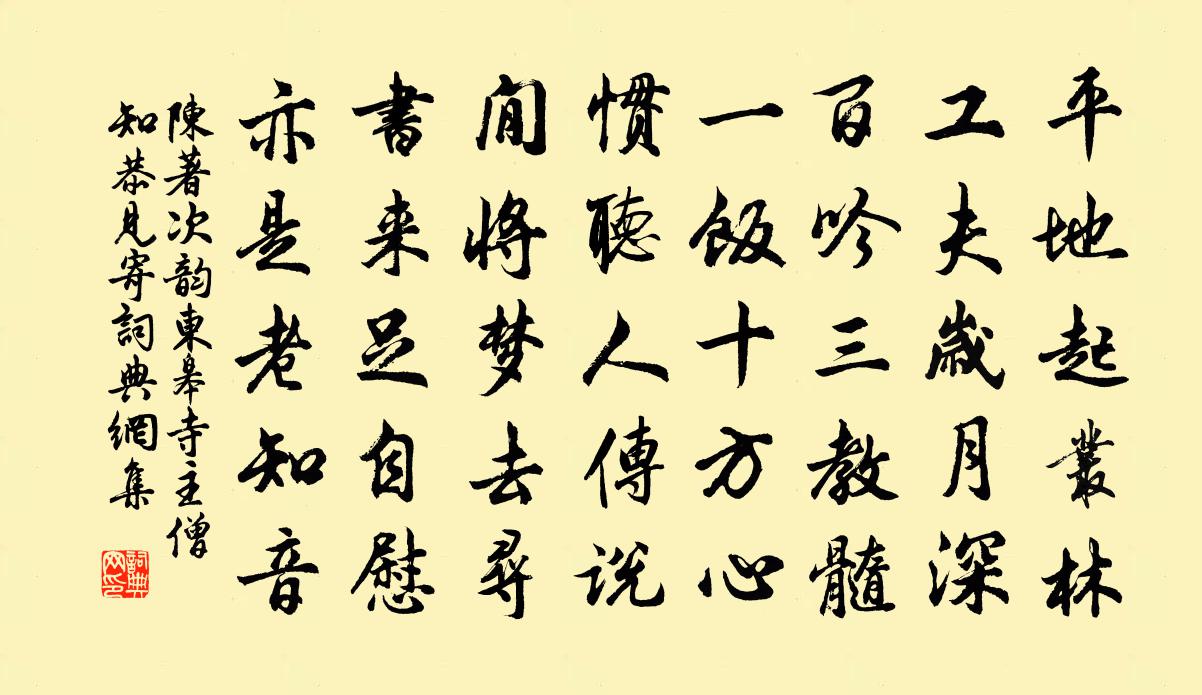 平地起叢林
工夫歲月深
百吟三教髓
一飯十方心
慣聽人傳説
閒將梦去尋
書来足自慰
亦是老知音
陳著次韵東皋寺主僧
知恭見寄詞典網集
詞典
网印